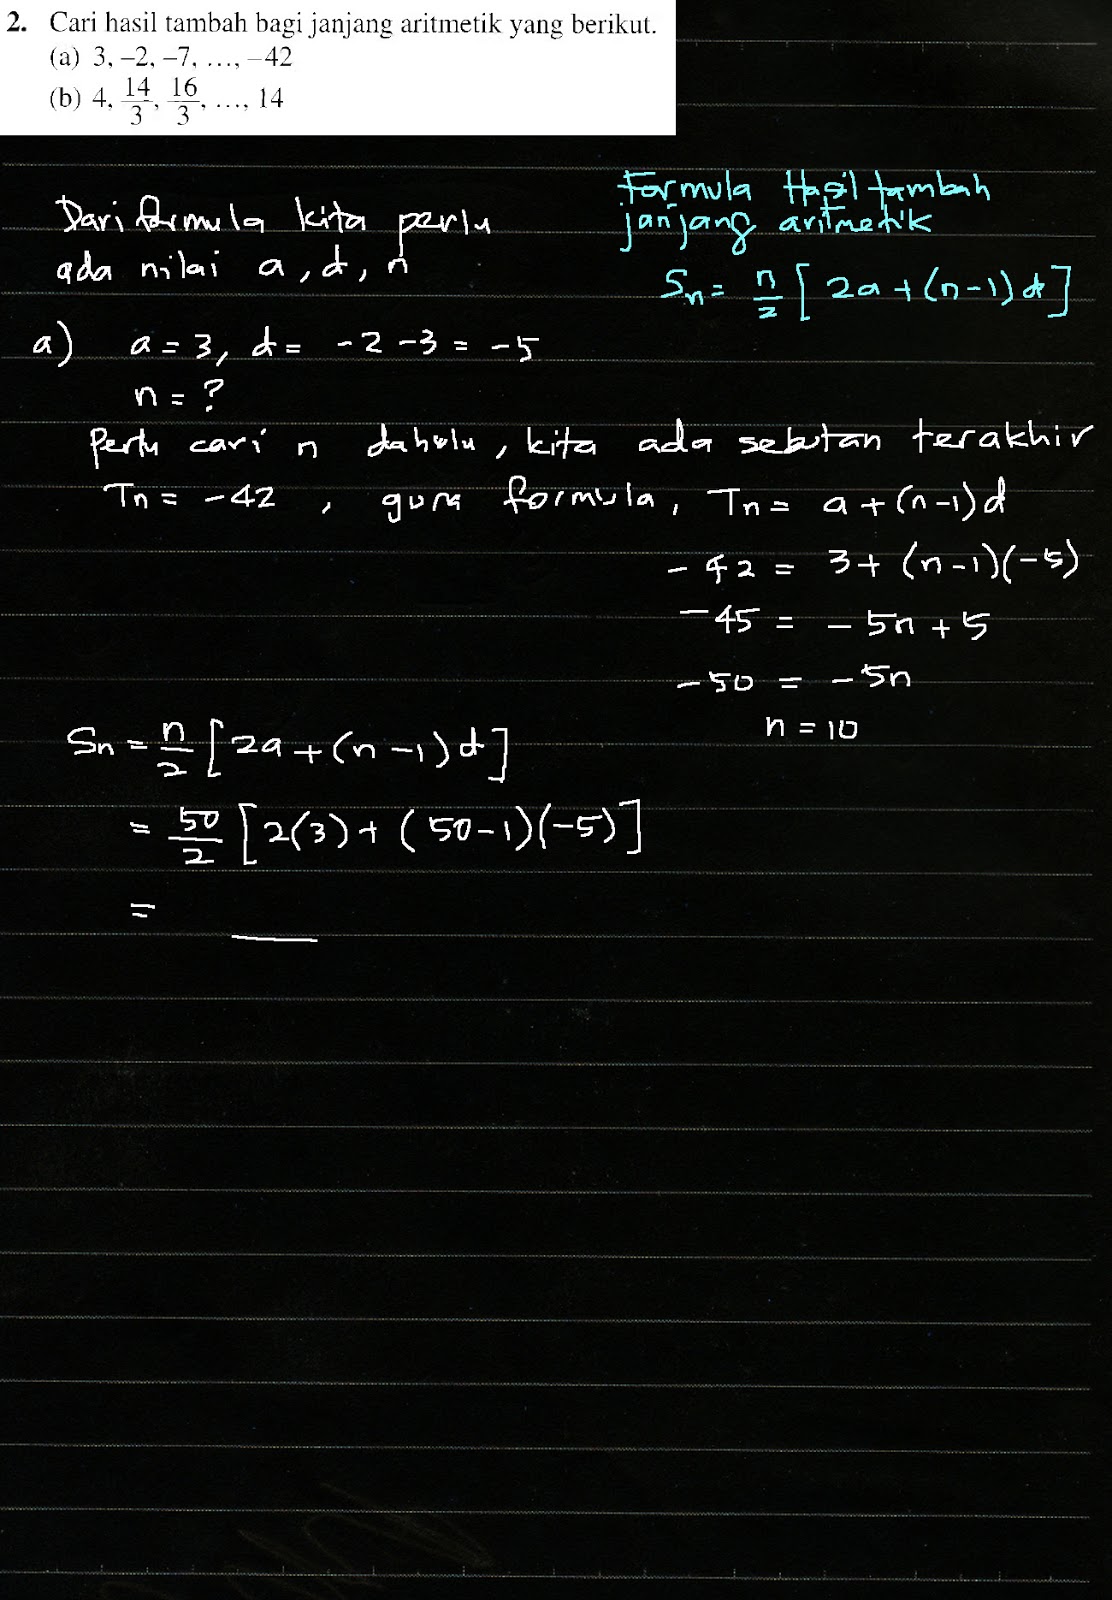 2. Cari hasil tambah bagi janjang aritmetik yang berikut.
(a) 3, –2, –7, …, –42
(b) 4, 14/3, 16/3, …, 14
Formula Hasil tambah
janjang aritmetik
Sn = n/2 [ 2a + (n-1) d ]
Dari formula kita perlu
ada nilai a, d, n
a) a = 3, d = -2 -3 = -5
n = ?
Perlu cari n dahulu, kita ada sebutan terakhir
Tn = -42 , guna formula, Tn = a + (n-1) d
-42 = 3 + (n-1)(-5)
-45 = -5n + 5
-50 = -5n
n = 10
Sn = n/2 [ 2a + (n-1) d ]
= 50/2 [ 2(3) + (50-1)(-5) ]
=